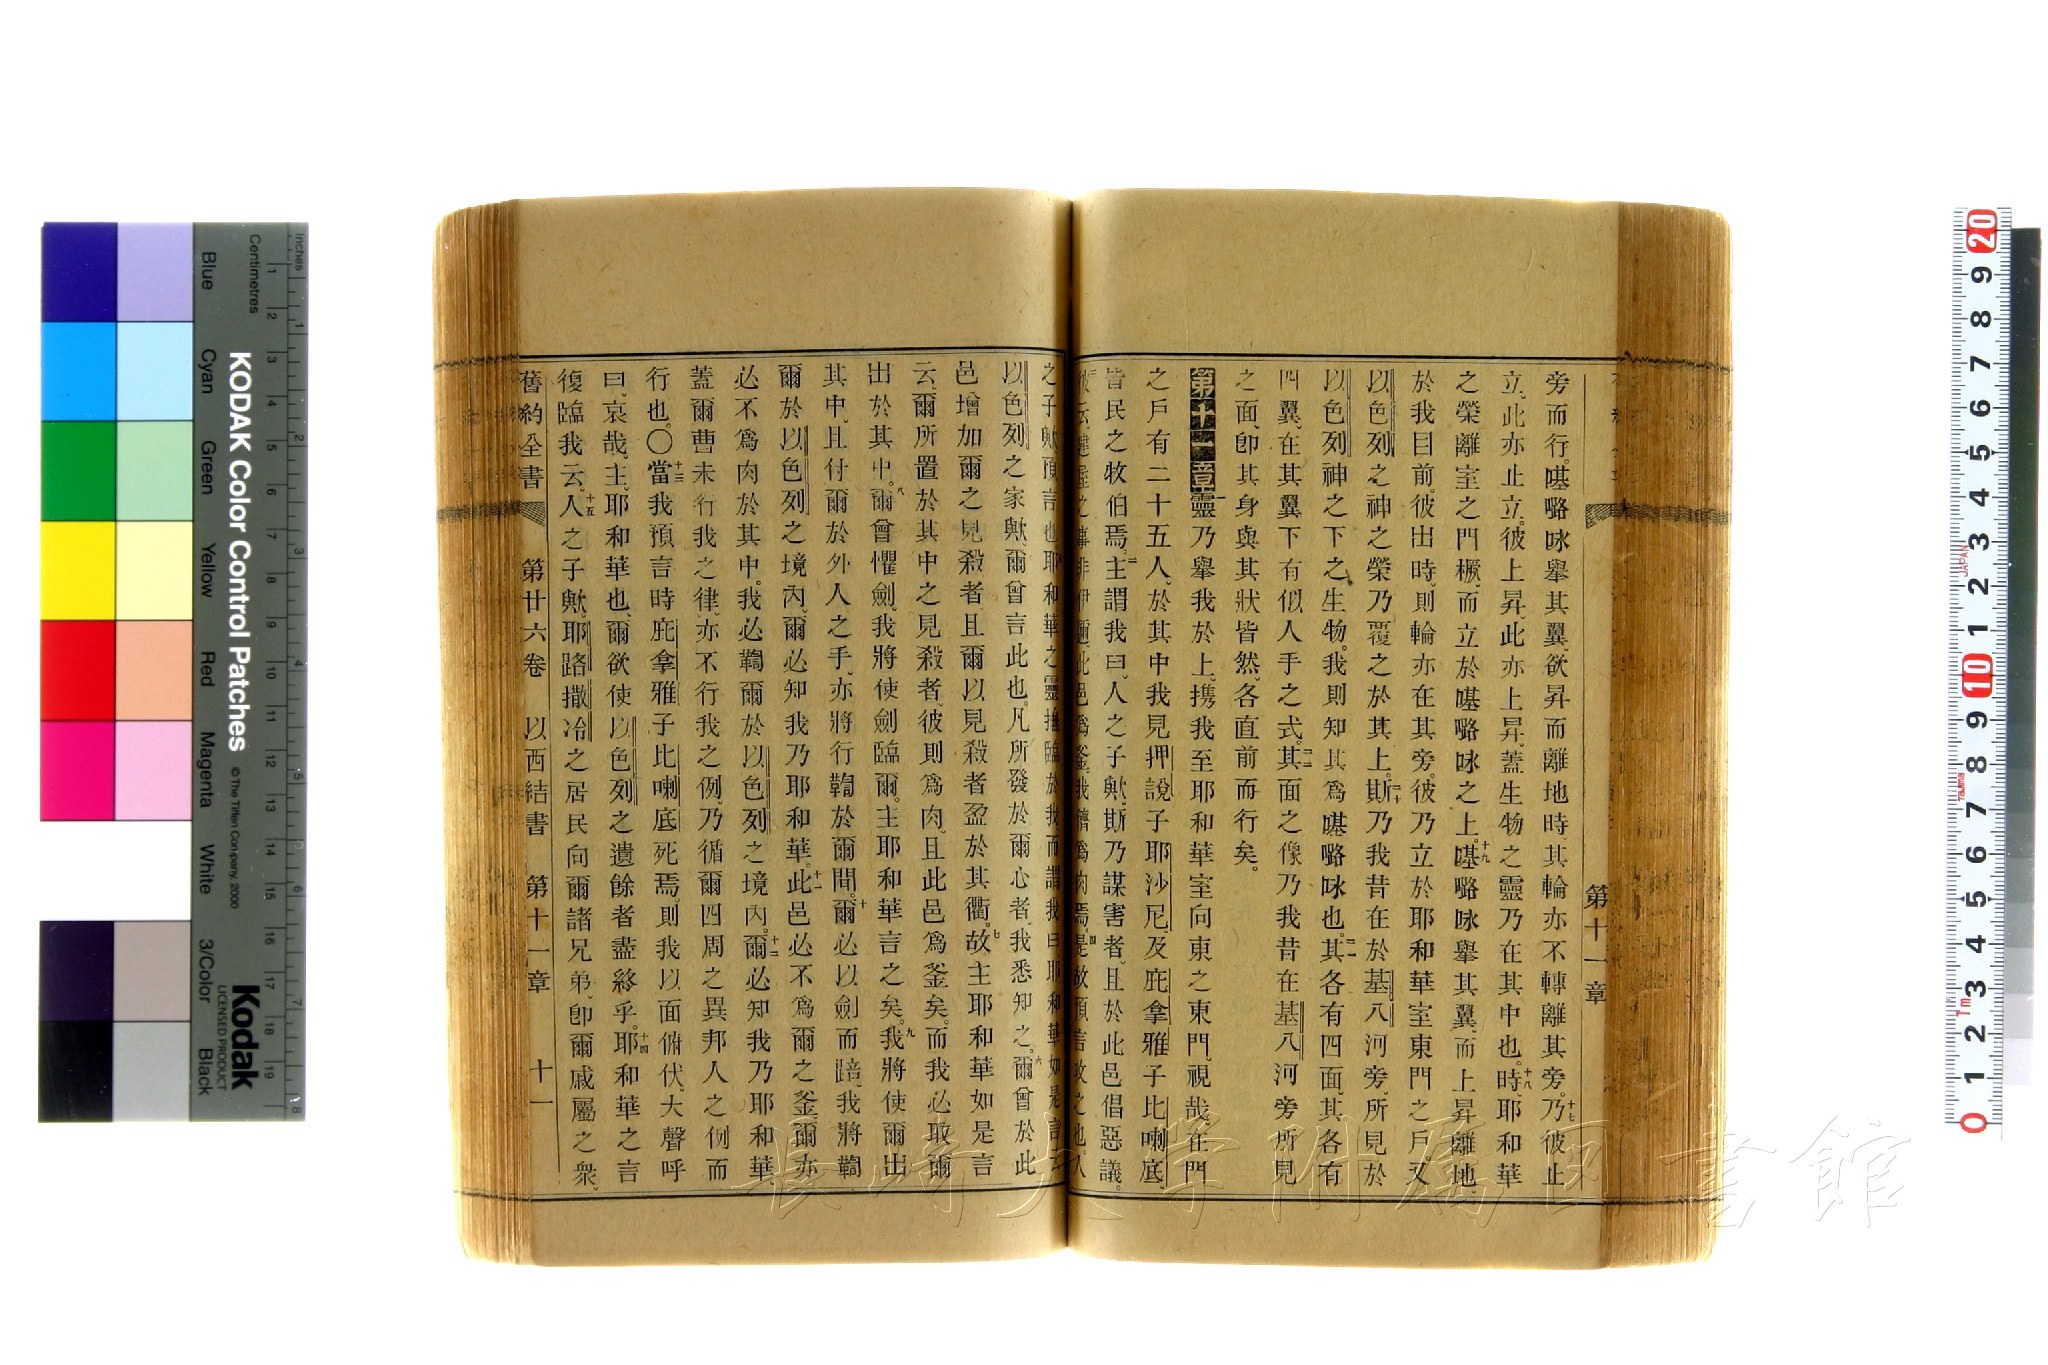 第十一章
旁而行。𠸄嚕㕲舉其翼、欲昇而離地時、其輪亦不轉離其旁。十七乃彼止
立、此亦止立。彼上昇、此亦上昇、蓋生物之靈乃在其中也。十八時、耶和華
之榮離室之門橛、而立於𠸄嚕㕲之上。十九𠸄嚕㕲舉其翼、而上昇離地、
於我目前。彼出時、則輪亦在其旁。彼乃立於耶和華室東門之戶。又
以色列之神之榮乃覆之於其上。二十斯乃我昔在於基八河旁、所見於
以色列神之下之生物。我則知其爲𠸄嚕㕲也。二一其各有四面、其各有
四翼、在其翼下有似人手之式。二二其面之像乃我昔在基八河旁所見
之面、卽其身與其狀皆然、各直前而行矣。
第十一章 一靈乃舉我於上、攜我至耶和華室向東之東門、視哉、在門
之戶有二十五人、於其中我見押說子耶沙尼、及庇拿雅子比喇底、
皆民之牧伯焉。二主謂我曰、人之子歟、斯乃謀害者、且於此邑倡惡議。
之事非伊邇、此邑爲釜、我儕爲肉焉。四是故預言攻之也、人
之子歟、預言也。五耶和華之靈臨於我、而謂我曰、耶和華如是言云、
以色列之家歟、爾曾言此也。凡所發於爾心者、我悉知之。六爾曾於此
邑增加爾之見殺者、且爾以見殺者盈於其衢。七故主耶和華如是言
云、爾所置於其中之見殺者、彼則爲肉、且此邑爲釜矣。而我必取爾
出於其中。八爾曾懼劍、我將使劍臨爾。主耶和華言之矣。九我將使爾出
其中、且付爾於外人之手、亦將行鞫於爾間。十爾必以劍而踣、我將鞫
爾於以色列之境內、爾必知我乃耶和華。十一此邑必不爲爾之釜、爾亦
必不爲肉於其中。我必鞫爾於以色列之境內。十二爾必知我乃耶和華、
蓋爾曹未行我之律、亦不行我之例、乃循爾四周之異邦人之例而
行也。〇十三當我預言時、庇拿雅子比喇底死焉。則我以面俯伏、大聲呼
曰、哀哉、主耶和華也、爾欲使以色列之遺餘者盡終乎。十四耶和華之言
復臨我云、十五人之子歟、耶路撒冷之居民向爾諸兄弟、卽爾戚屬之衆、
舊約全書 第廿六卷 以西結書 第十一章 十一
長崎大学附属図書館
Inches
Centimetres
KODAK Color Control Patches
© The Tiffen Company, 2000
Kodak
LICENSED PRODUCT
Blue
Cyan
Green
Yellow
Red
Magenta
White
3/Color
Black
JAPAN
Tajima
1m